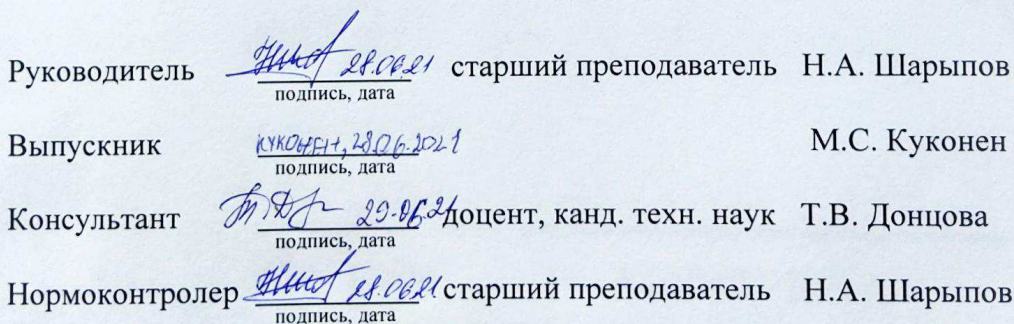 Руководитель 28.06.21 старший преподаватель Н.А. Шарыпов
подпись, дата
Выпускник Куконен, 28.06.2021 М.С. Куконен
подпись, дата
Консультант 29.06.21 доцент, канд. техн. наук Т.В. Донцова
подпись, дата
Нормоконтролер 28.06.21 старший преподаватель Н.А. Шарыпов
подпись, дата